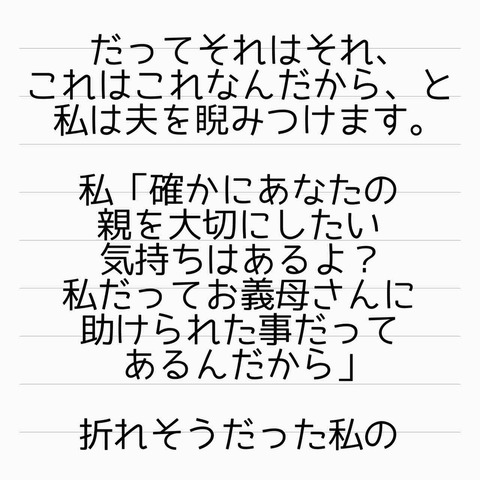 だってそれはそれ、
これはこれなんだから、と
私は夫を睨みつけます。
私「確かにあなたの
親を大切にしたい
気持ちはあるよ？
私だってお義母さんに
助けられた事だって
あるんだから」
折れそうだった私の